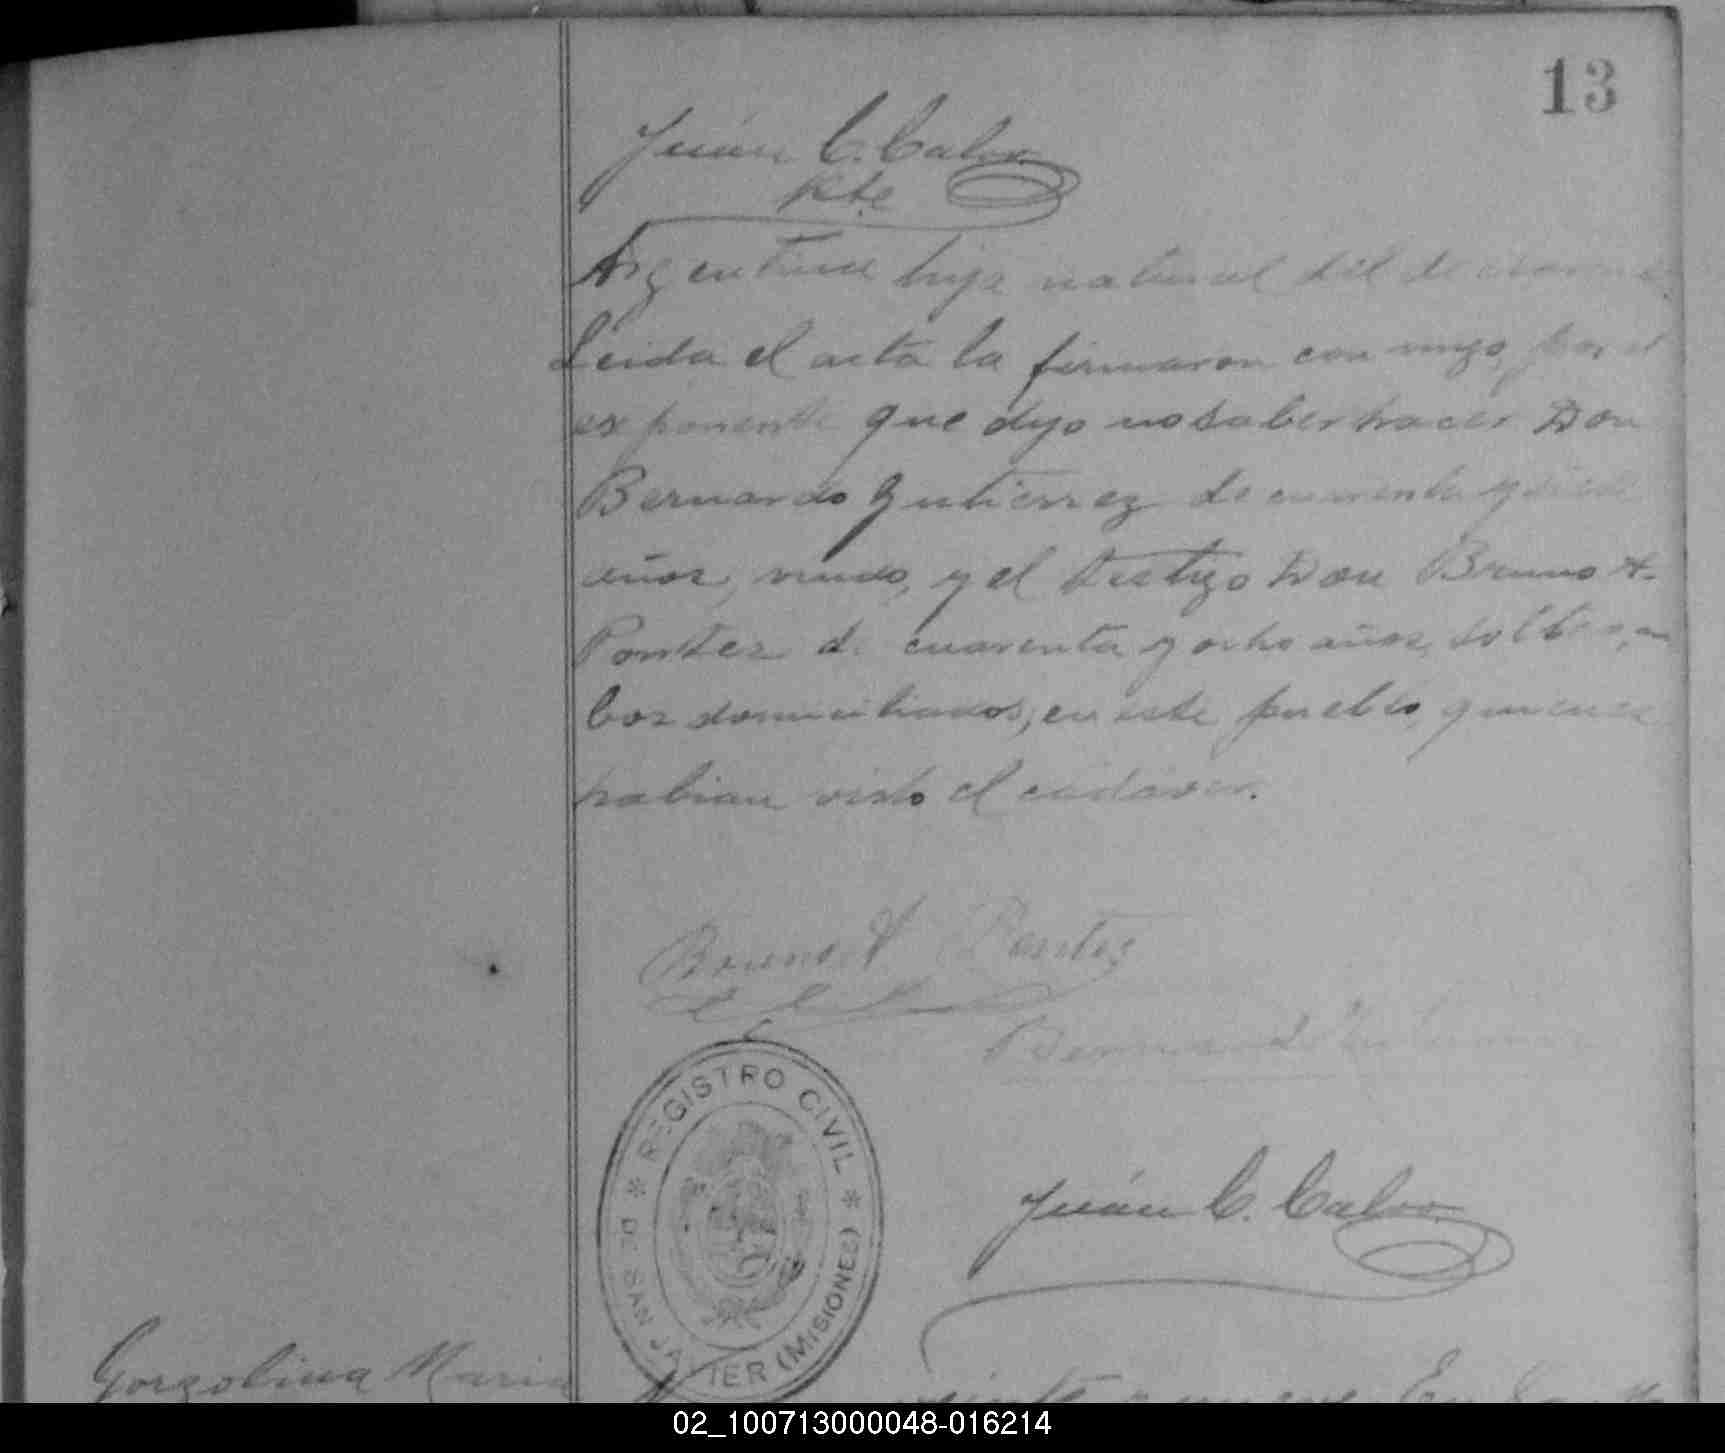 13
Juán C. Calvo
Argentina hija natural del
Leida el acta la firmaron con migo, por el
exponente que dijo no saber hacer Don
Bernardo Gutierrez de cuarenta y
años, viudo, y el testigo Don Bruno A.
Pontes de cuarenta y ocho años, soltero, am
bos domiciliados, en este pueblo, quienes
habian visto el cadaver.
Bruno A Pontes
Bernardo Gutierrez
REGISTRO CIVIL * DE SAN JAVIER (MISIONES) *
Juán C. Calvo
Gorgolina Maria
veinte y nueve En
02_100713000048-016214